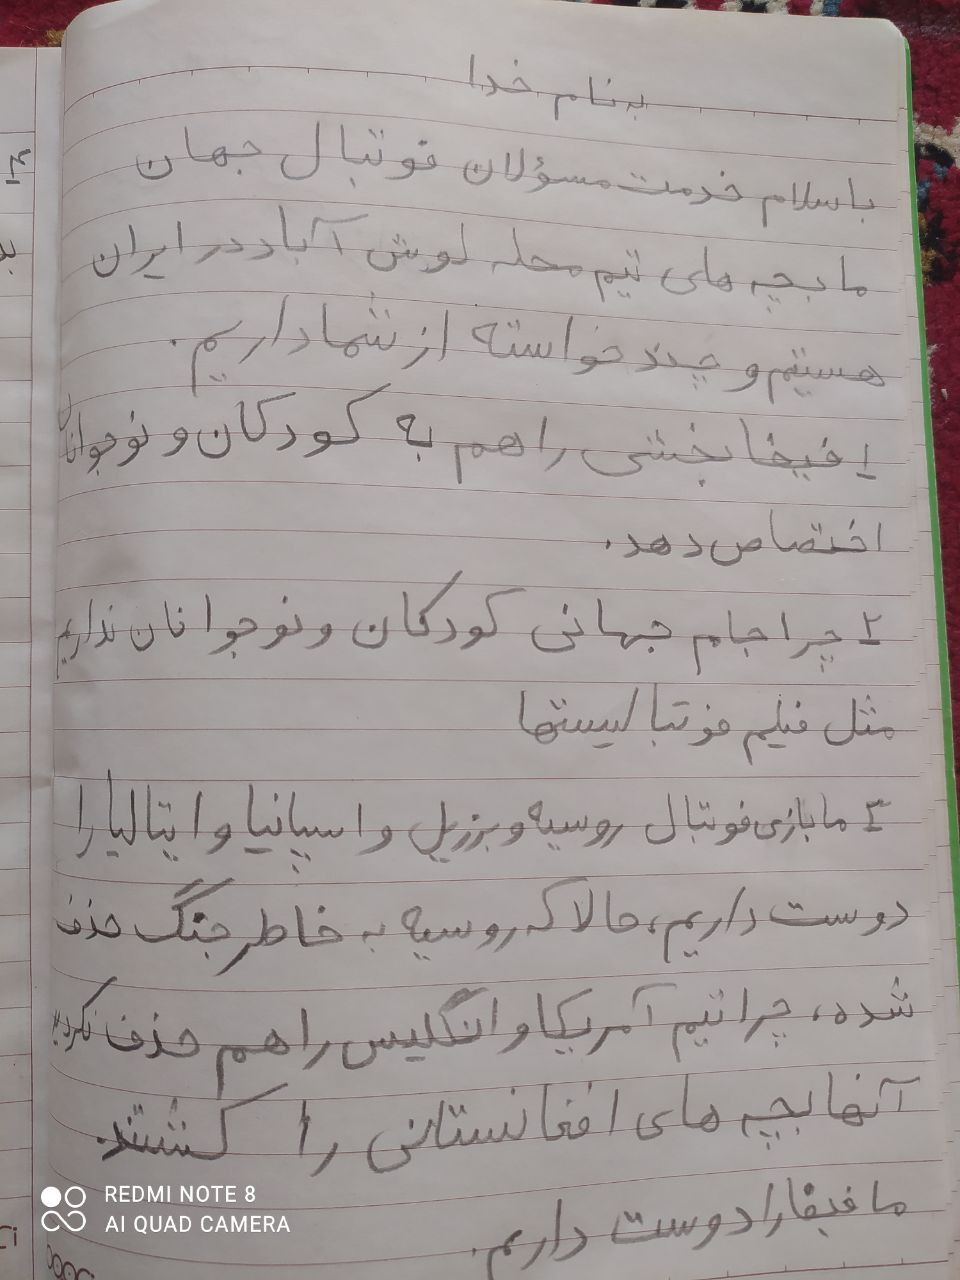 به نام خدا
با سلام خدمت مسؤلان فوتبال جهان
ما بچه های تیم محله لوش آباد در ایران
هستیم و چند خواسته از شما داریم.
۱ـ فیفا بخشی را هم به کودکان و نوجوانان
اختصاص دهد.
۲ـ چرا جام جهانی کودکان و نوجوانان نداریم
مثل فیلم فوتبالیستها
۳ـ ما بازی فوتبال روسیه و برزیل و اسپانیا و ایتالیا را
دوست داریم، حالا که روسیه به خاطر جنگ حذف
شده، چرا تیم آمریکا و انگلیس را هم حذف نکردید
آنها بچه های افغانستانی را کشتند.
ما فیفا را دوست داریم.
REDMI NOTE 8
AI QUAD CAMERA